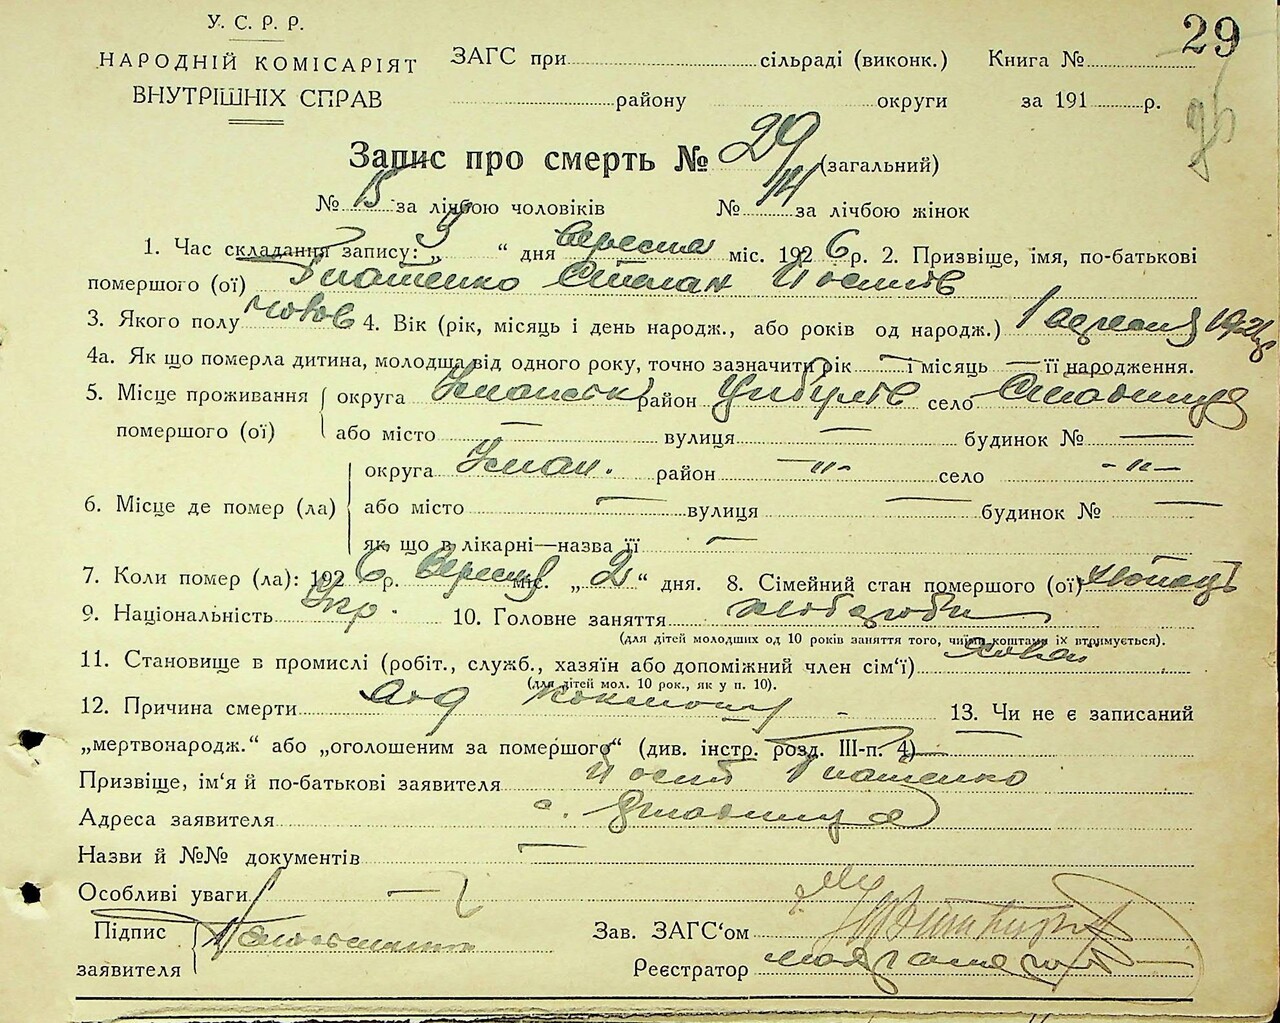 У. С. Р. Р.
НАРОДНІЙ КОМІСАРІЯТ
ВНУТРІШНІХ СПРАВ
ЗАГС при сільраді (виконк.) Книга №
району округи за 191 р.
29
Запис про смерть № 29 (загальний)
№ 15 за лічбою чоловіків № 14 за лічбою жінок
1. Час складання запису: „ 3 “ дня вересня міс. 1926 р. 2. Призвіще, імя, по-батькові
помершого (ої) Гнатенко Степан
3. Якого полу 4. Вік (рік, місяць і день народж., або років од народж.) 1
4а. Як що померла дитина, молодша від одного року, точно зазначити рік — і місяць — її народження.
5. Місце проживання помершого (ої) округа Уманськ район Цибулів село
або місто — вулиця — будинок № —
6. Місце де помер (ла) округа Уман. район –"– село –"–
або місто — вулиця — будинок № —
як що в лікарні—назва її —
7. Коли помер (ла): 1926 р. вересня міс. „2“ дня. 8. Сімейний стан помершого (ої)
9. Національність Укр. 10. Головне заняття хлібороби
(для дітей молодших од 10 років заняття того, чиїми коштами їх втримується).
11. Становище в промислі (робіт., служб., хазяїн або допоміжний член сім‘ї)
(для дітей мол. 10 рок., як у п. 10).
12. Причина смерти од 13. Чи не є записаний
„мертвонародж.“ або „оголошеним за помершого“ (див. інстр. розд. III-п. 4) —
Призвіще, ім‘я й по-батькові заявителя Гнатенко
Адреса заявителя с.
Назви й №№ документів —
Особливі уваги —
Підпис заявителя
Зав. ЗАГС‘ом
Реєстратор